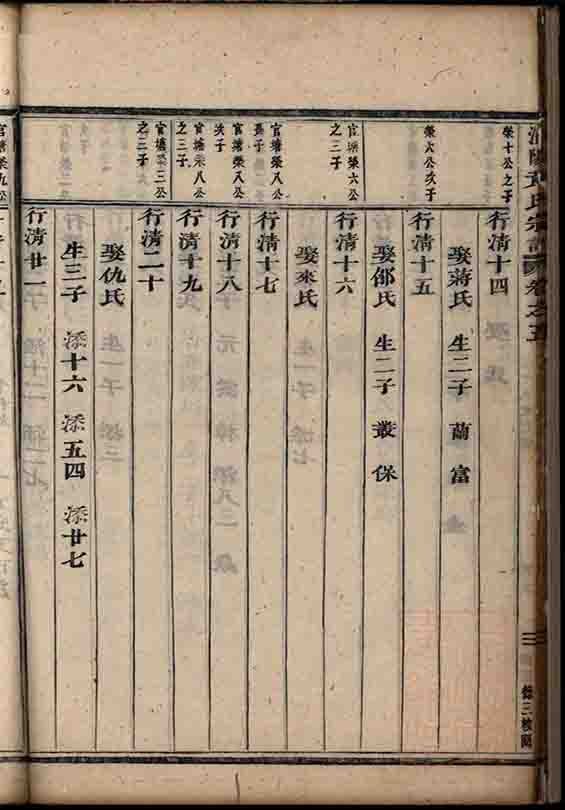 氏宗譜 卷之五
榮十公之子
行清十四
娶蔣氏 生二子 蘭 富
榮六公次子
行清十五
娶邵氏 生二子 叢 保
官塘榮六公之三子
行清十六
娶來氏
官塘榮八公長子
行清十七
官塘榮八公次子
行清十八
官塘榮八公之三子
行清十九
官塘榮三公之三子
行清二十
娶仇氏
生三子 添十六 添五四 添廿七
行清廿一
官塘榮九公